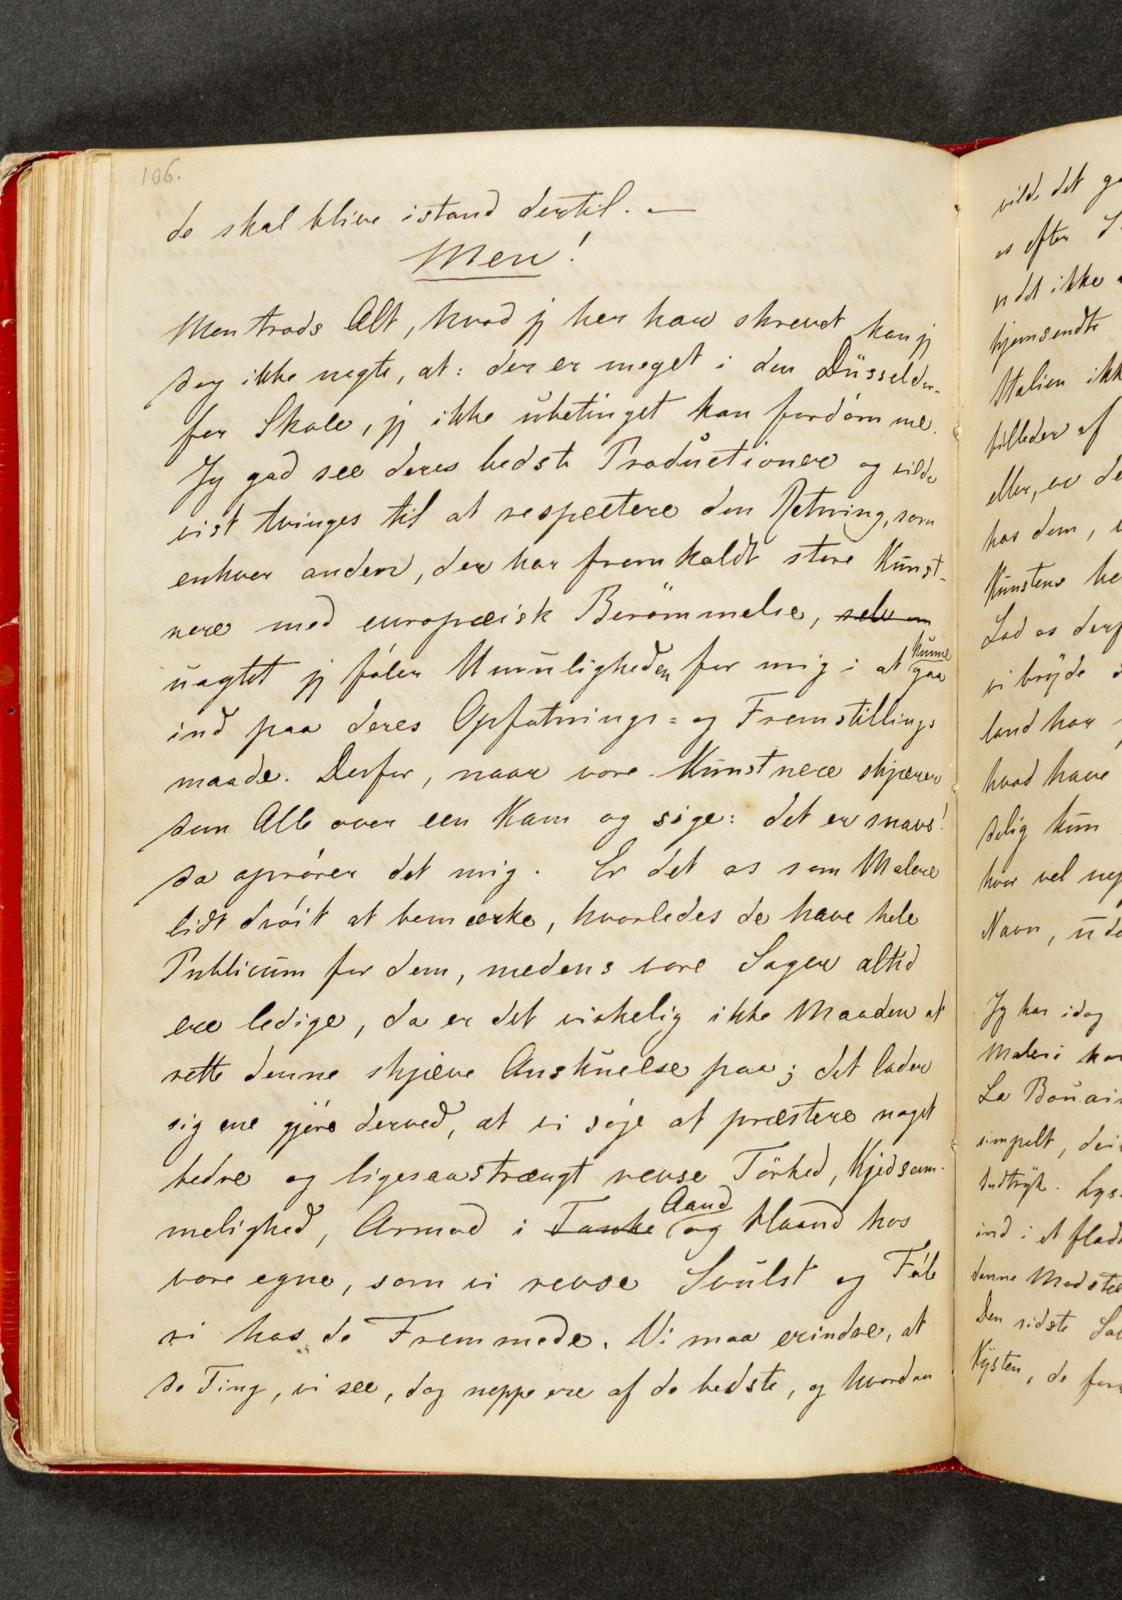 106.
de skal blive istand dertil. —
Men!
Men trods Alt, hvad jeg her har skrevet kan jeg
dog ikke negte, at: der er meget i den Düsseldor-
fer Skole, jeg ikke ubetinget kan fordömme.
Jeg gad see deres bedste Productioner og vilde
vist tvinges til at respectere den Retning, som
enhver anden, der har fremkaldt store Kunst-
nere med europæisk Berömmelse, selv om
uagtet jeg föler Umuligheden for mig i at kunne gaa
ind paa deres Opfatnings= og Fremstillings
maade. Derfor, naar vore Kunstnere skjærer
dem Alle over een Kam og sige: det er snavs!
da oprörer det mig. Er det os som Malere
lidt dröit at bemærke, hvorledes de have hele
Publicum for dem, medens vore Sager altid
ere ledige, da er det virkelig ikke Maaden at
rette denne skjæve Anskuelse paa; det lader
sig ene gjöre derved, at vi söge at præstere noget
bedre og ligesaastrængt revse Törhed, Kjedsom-
melighed, Armod i Tanke Aand og Haand hos
vore egne, som vi revse Svulst og Föle
ri hos de Fremmede. Vi maa erindre, at
de Ting, vi see, dog neppe ere af de bedste, og hvordan
vilde det
os efter
er det ikke
hjemsendte
Italien ikk
billeder af
eller, er de
hos dem,
Kunstens he
Lad os derf
vi bryde
land har
hvad have
delig kun
hvor vel nep
Navn, ude
Jeg har idag
Maleri
La Bouai
simpelt, dei
Indtryk. Lys
ind i et flad
denne Modstæ
Den sidste
Kysten, de for